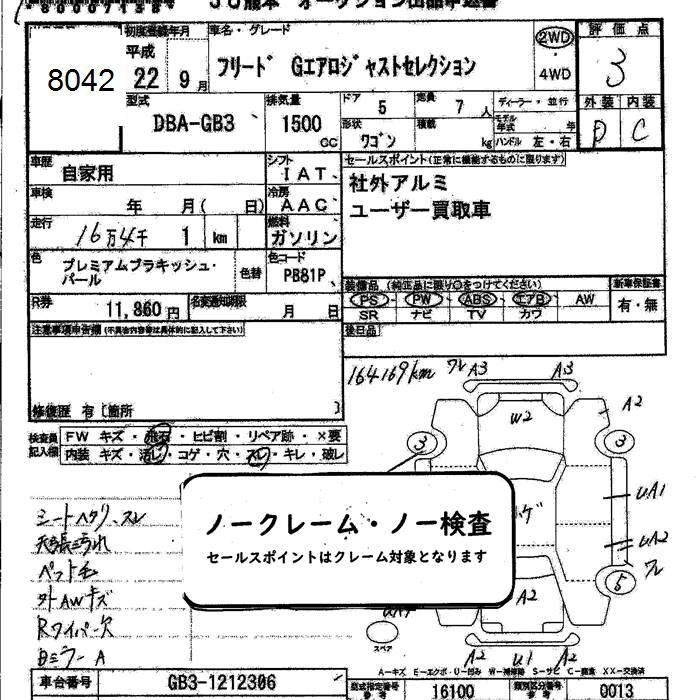 8042
初度登録年月
平成
22 9月
車名・グレード
フリード Gエアロジャストセレクション
2WD
4WD
評価点
3
型式
DBA-GB3
排気量
1500
cc
ドア 5
定員 7 人
形状 ワゴン
積載 kg
ディーラー・並行
モデル年式 年
ハンドル 左・右
外装 内装
D C
車歴
自家用
シフト
IAT
車検
年 月( 日)
冷房
AAC
走行
16万4千 1 km
燃料
ガソリン
色
プレミアムブラキッシュ・パール
色替
色コード
PB81P
セールスポイント(正常に機能するものに限ります)
社外アルミ
ユーザー買取車
R券
11,860円
名変通知期限
月 日
装備品(純正品に限り○をつけてください)
PS・PW・ABS・エアB・AW
SR ナビ TV カワ
新車保証書
有・無
注意事項申告欄(不具合内容等は具体的に記入して下さい)
後日品
修復歴 有〔箇所 〕
検査員記入欄
FW キズ・飛石・ヒビ割・リペア跡・×要
内装 キズ・汚レ・コゲ・穴・スレ・キレ・破レ
164169km
ワレ A3 A3
W2
A2
3
3
UA1
UA2
ワレ
5
A2
A2 U1 A2
スペア
シートヘタリ、スレ
天張汚れ
ペット毛
外AWキズ
Rワイパー欠
BミラーA
ノークレーム・ノー検査
セールスポイントはクレーム対象となります
A-キズ E-エクボ・U-凹み W-補修跡 S-サビ C-腐食 XX-交換済
車台番号
GB3-1212306
型式指定番号
16100
類別区分番号
0013